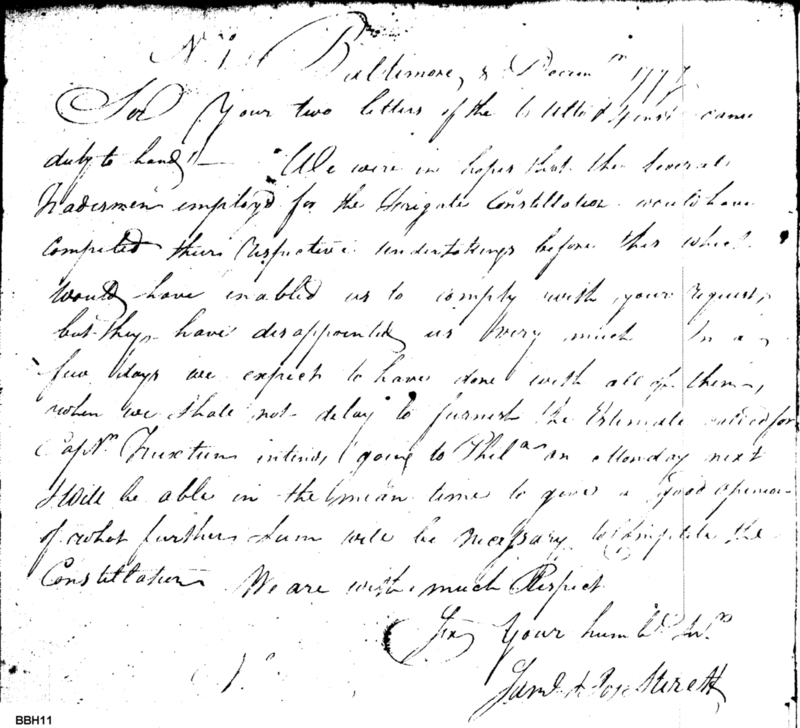 No 1
Baltimore, 8 Decemr 1797
Sir Your two letters of the came
duly to hand — We were in hopes that the several
Tradesmen employd for the Frigate Constillation would have
completed their respective undertakings before this which
would have enabled us to comply with your request,
but they have disappointed us very much In a
few days we expect to have done with all of them,
when we shall not delay to furnish the Estimate called for
Captn Truxtun intends going to Phila on Monday next
& will be able in the mean time to give a good opinion
of what further sum will be necessary to compleate the
Constillation We are with much Respect
Sir Your humble Svt
Saml & Jos Sterett
BBH11